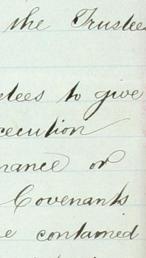 the Trustees
stees to give
xecution
nance or
Covenants
e contained